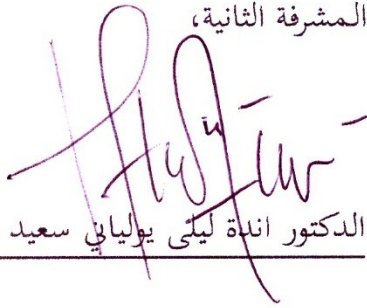 المشرفة الثانية،
الدكتور اندة ليلى يولياني سعيد